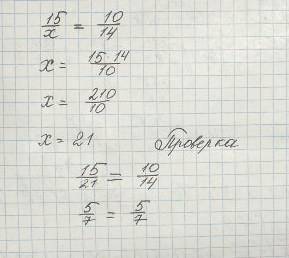 15/x = 10/14
x = 15 14/10
x = 210/10
x = 21 Проверка
15/21 = 10/14
5/7 = 5/7